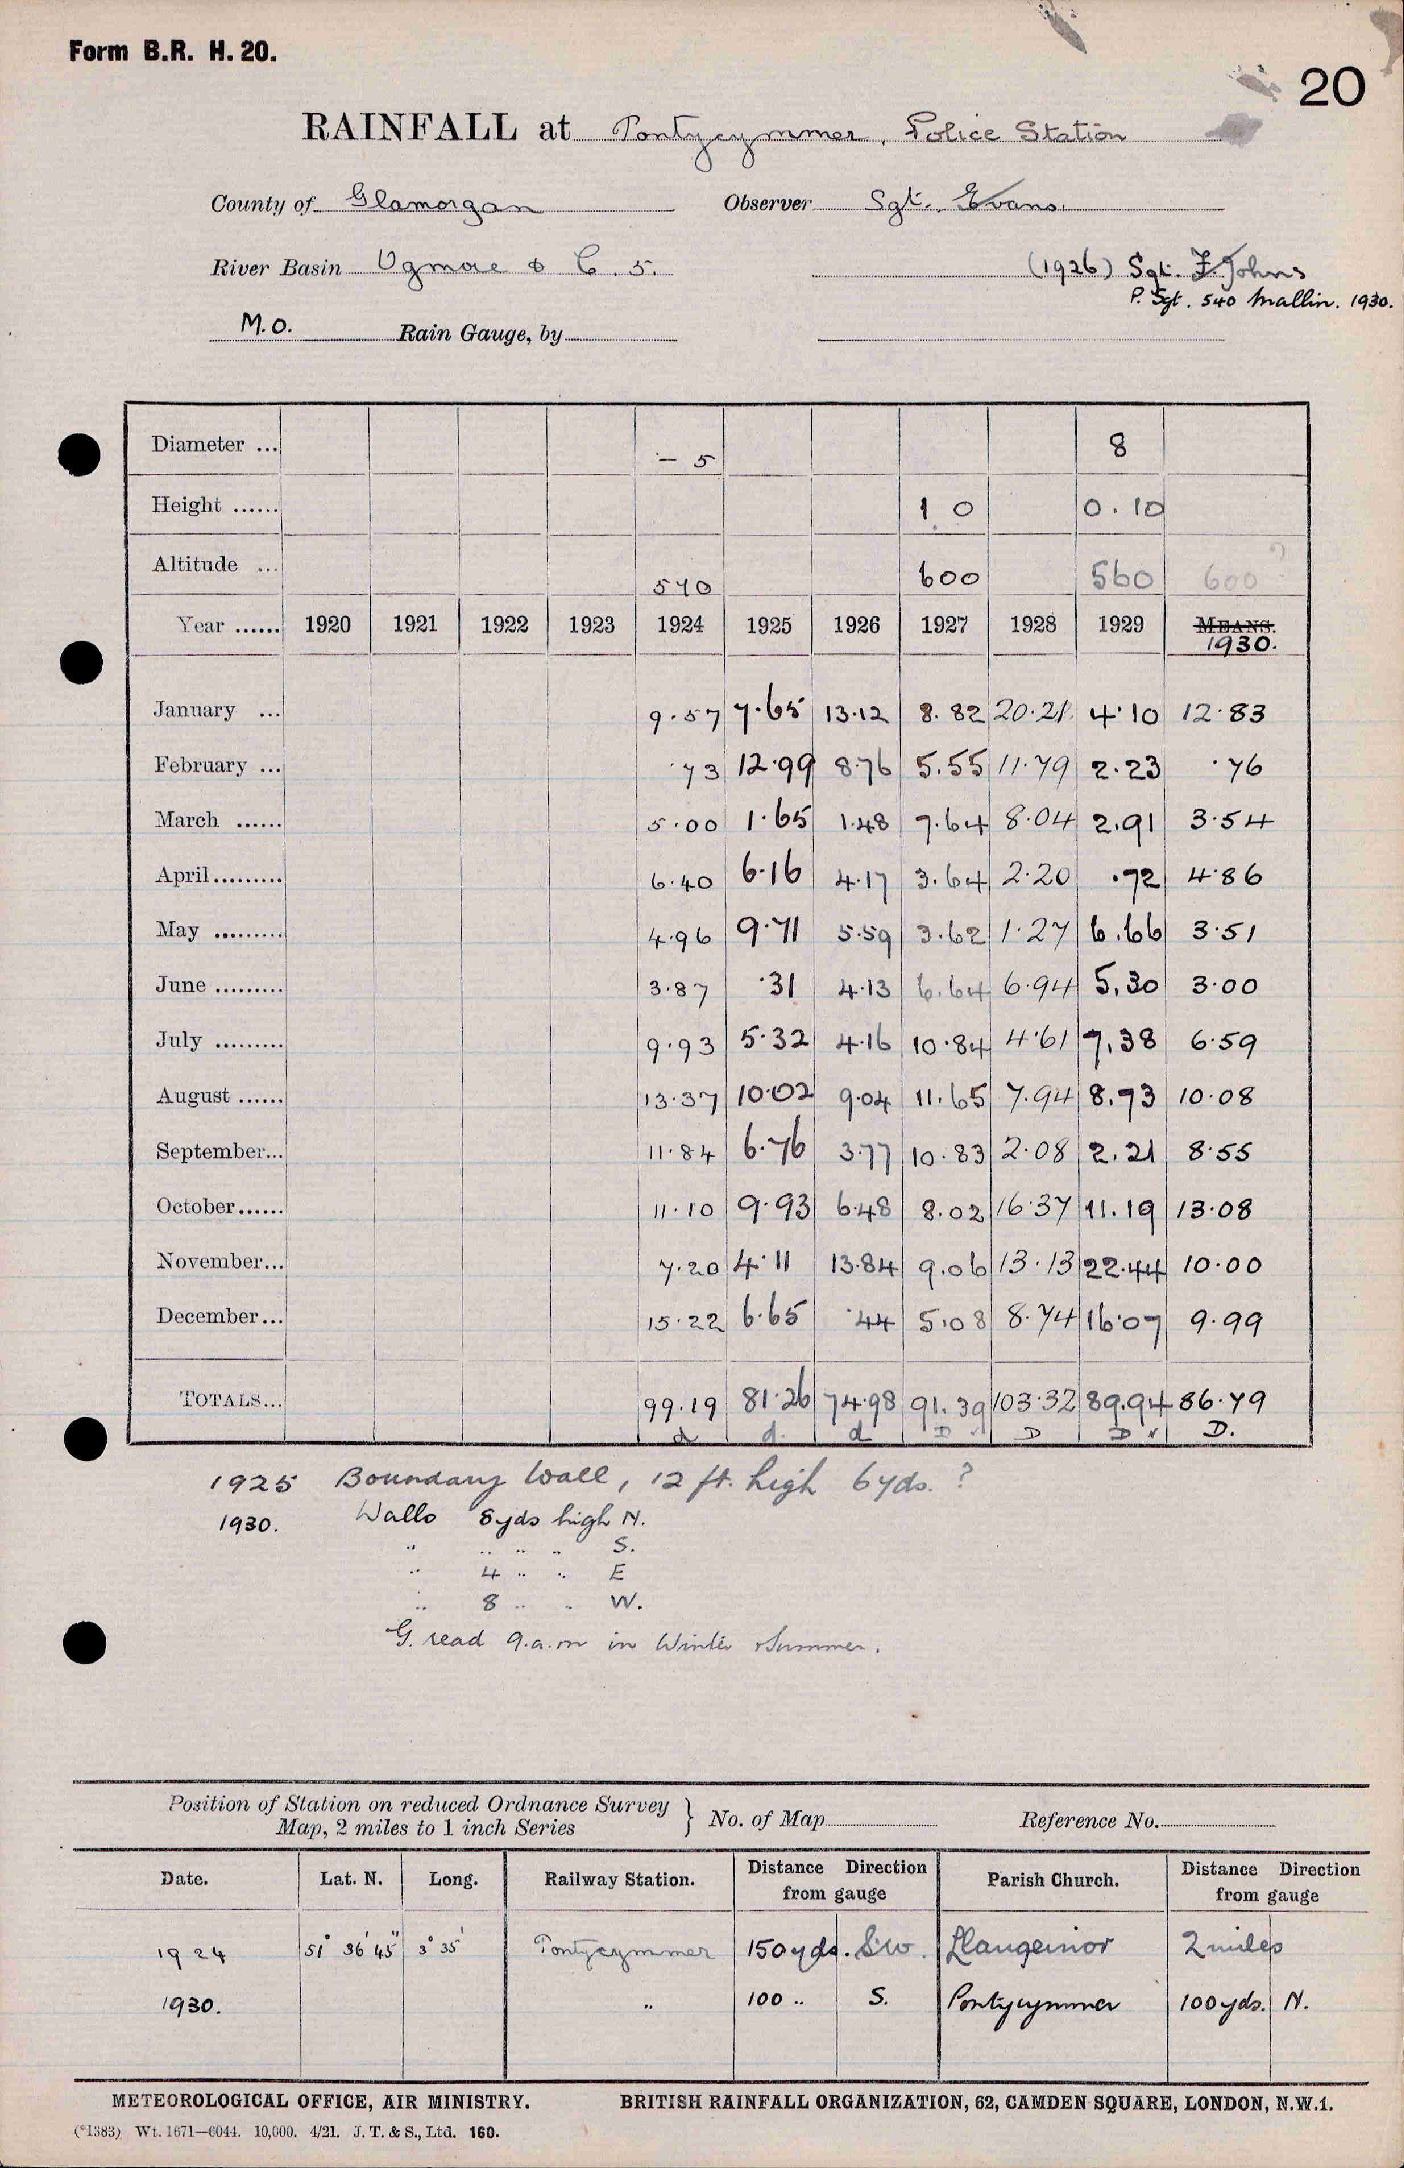 Form B.R. H. 20.
20
RAINFALL at Pontycymmer, Police Station
County of Glamorgan Observer Sgt. Evans.
River Basin Ogmore & C. 5. (1926) Sgt. F. Johns
P. Sgt. 540 Mallin. 1930.
M.O. Rain Gauge, by
Diameter ... – 5 8
Height ...... 1 0 0.10
Altitude ... 570 600 560 600 ?
Year ...... 1920 1921 1922 1923 1924 1925 1926 1927 1928 1929 MEANS.
1930.
January ... 9.57 7.65 13.12 8.82 20.21 4.10 12.83
February ... .73 12.99 8.76 5.55 11.79 2.23 .76
March ...... 5.00 1.65 1.48 7.64 8.04 2.91 3.54
April......... 6.40 6.16 4.17 3.64 2.20 .72 4.86
May ......... 4.96 9.71 5.59 3.62 1.27 6.66 3.51
June ......... 3.87 .31 4.13 6.64 6.94 5.30 3.00
July ......... 9.93 5.32 4.16 10.84 4.61 7.38 6.59
August ...... 13.37 10.02 9.04 11.65 7.94 8.73 10.08
September... 11.84 6.76 3.77 10.83 2.08 2.21 8.55
October...... 11.10 9.93 6.48 8.02 16.37 11.19 13.08
November... 7.20 4.11 13.84 9.06 13.13 22.44 10.00
December... 15.22 6.65 .44 5.08 8.74 16.07 9.99
TOTALS... 99.19 81.26 74.98 91.39 103.32 89.94 86.79
d d. d D D D D.
1925 Boundary Wall, 12 ft. high 6 yds. ?
1930. Walls 8 yds high N.
" " " " S.
" 4 " " E
" 8 " " W.
G. read 9.a.m in Winter & Summer.
Position of Station on reduced Ordnance Survey
Map, 2 miles to 1 inch Series } No. of Map Reference No.
Date. Lat. N. Long. Railway Station. Distance Direction from gauge Parish Church. Distance Direction from gauge
1924 51° 36' 45" 3° 35' Pontycymmer 150 yds. S.W. Llangeinor 2 miles
1930. " 100 " S. Pontycymmer 100 yds. N.
METEOROLOGICAL OFFICE, AIR MINISTRY. BRITISH RAINFALL ORGANIZATION, 62, CAMDEN SQUARE, LONDON, N.W.1.
(*1383) Wt. 1671—6044. 10,000. 4/21. J. T. & S., Ltd. 160.